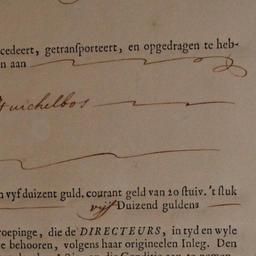 cedeert, getransporteert, en opgedragen te heb-
n aan
uichelbos
n vyf duizent guld. courant geld van 20 stuiv. 't stuk
vijf Duizend guldens
roepinge, die de DIRECTEURS, in tyd en wyle
e behooren, volgens haar origineelen Inleg. Den